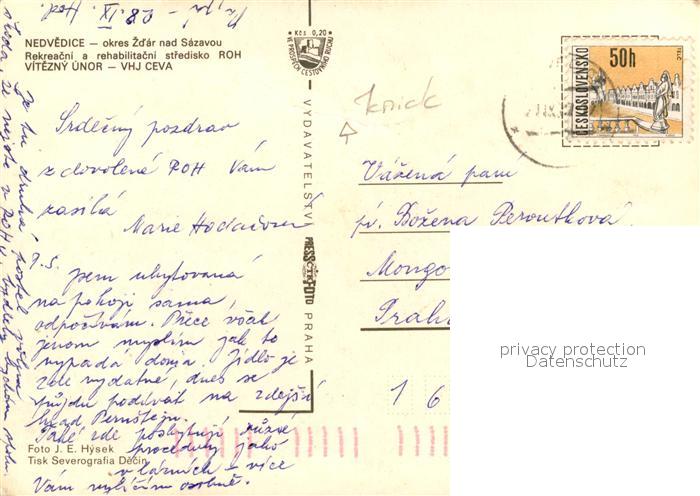 NEDVĚDICE — okres Žďár nad Sázavou
Rekreační a rehabilitační středisko ROH
VÍTĚZNÝ ÚNOR – VHJ CEVA
Kčs 0,20
VE PROSPĚCH CESTOVNÍHO RUCHU
50h
TELČ
ČESKOSLOVENSKO
knick
Srdečný pozdrav
z dovolené ROH Vám
zasílá
Marie
P.S. jsem ubytovaná
na pokoji sama,
odpočívám. Přece však
jenom myslím jak to
vypadá doma. Jídlo je
zde vydatné, dnes se
půjdu podívat na zdejší
hrad Pernštejn.
Také zde poskytují různé
procedury jako
v lázních – více
Vám vylíčím osobně.
že tu druhá postel
škoda, že nejste v ROH
VYDAVATELSTVÍ
PRESSFOTO
PRAHA
Vážená paní
pí. Božena Peroutková
Mongo
Praha
1 6
privacy protection
Datenschutz
Foto J. E. Hýsek
Tisk Severografia Děčín